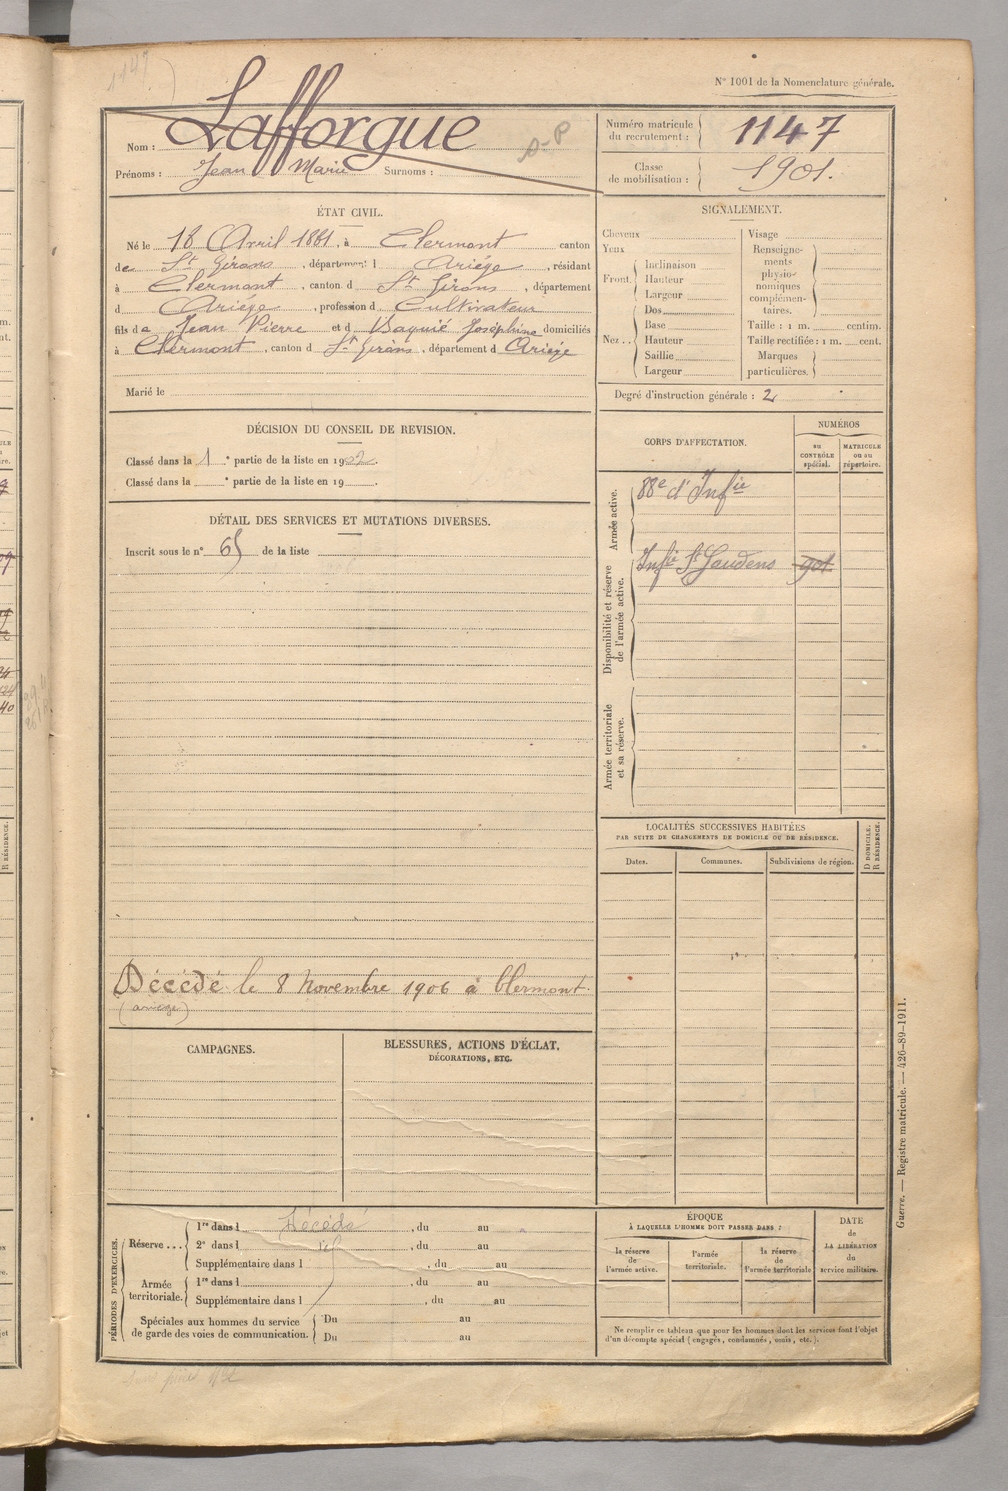 1147
N° 1001 de la Nomenclature générale.
Nom : Lafforgue
Prénoms : Jean Marie Surnoms :
Numéro matricule du recrutement : 1147
Classe de mobilisation : 1901.
ÉTAT CIVIL.
Né le 18 Avril 1881, à Clermont canton
de St Girons, département d Ariège, résidant
à Clermont, canton d St Girons, département
d Ariége, profession d Cultivateur
fils de Jean Pierre et d Baquié Joséphine domiciliés
à Clermont, canton d St Girons, département d Ariége
Marié le
SIGNALEMENT.
Cheveux
Yeux
Front. Inclinaison
Hauteur
Largeur
Nez... Dos
Base
Hauteur
Saillie
Largeur
Visage
Renseigne-
ments
physio-
nomiques
complémen-
taires.
Taille : 1 m. centim.
Taille rectifiée : 1 m. cent.
Marques
particulières.
Degré d'instruction générale : 2
DÉCISION DU CONSEIL DE REVISION.
Classé dans la 1e partie de la liste en 1902.
Classé dans la e partie de la liste en 19 .
DÉTAIL DES SERVICES ET MUTATIONS DIVERSES.
Inscrit sous le n° 65 de la liste
Décédé le 8 Novembre 1906 à Clermont
(ariège)
CORPS D'AFFECTATION.
NUMÉROS
au CONTRÔLE spécial.
MATRICULE ou au répertoire.
Armée active.
88e d'Infie
Disponibilité et réserve de l'armée active.
Infie St Gaudens 901
Armée territoriale et sa réserve.
LOCALITÉS SUCCESSIVES HABITÉES
PAR SUITE DE CHANGEMENTS DE DOMICILE OU DE RÉSIDENCE.
Dates.
Communes.
Subdivisions de région.
D DOMICILE.
R RÉSIDENCE.
CAMPAGNES.
BLESSURES, ACTIONS D'ÉCLAT,
DÉCORATIONS, ETC.
PÉRIODES D'EXERCICES.
Réserve ... 1re dans l Décédé, du au
2e dans l , du au
Supplémentaire dans l , du au
Armée territoriale. 1re dans l , du au
Supplémentaire dans l , du au
Spéciales aux hommes du service
de garde des voies de communication.
Du au
Du au
ÉPOQUE
À LAQUELLE L'HOMME DOIT PASSER DANS :
la réserve de l'armée active.
l'armée territoriale.
la réserve de l'armée territoriale
DATE
de
LA LIBÉRATION
du
service militaire.
Ne remplir ce tableau que pour les hommes dont les services font l'objet
d'un décompte spécial (engagés, condamnés, omis, etc.).
Guerre. — Registre matricule. — 426-89-1911.